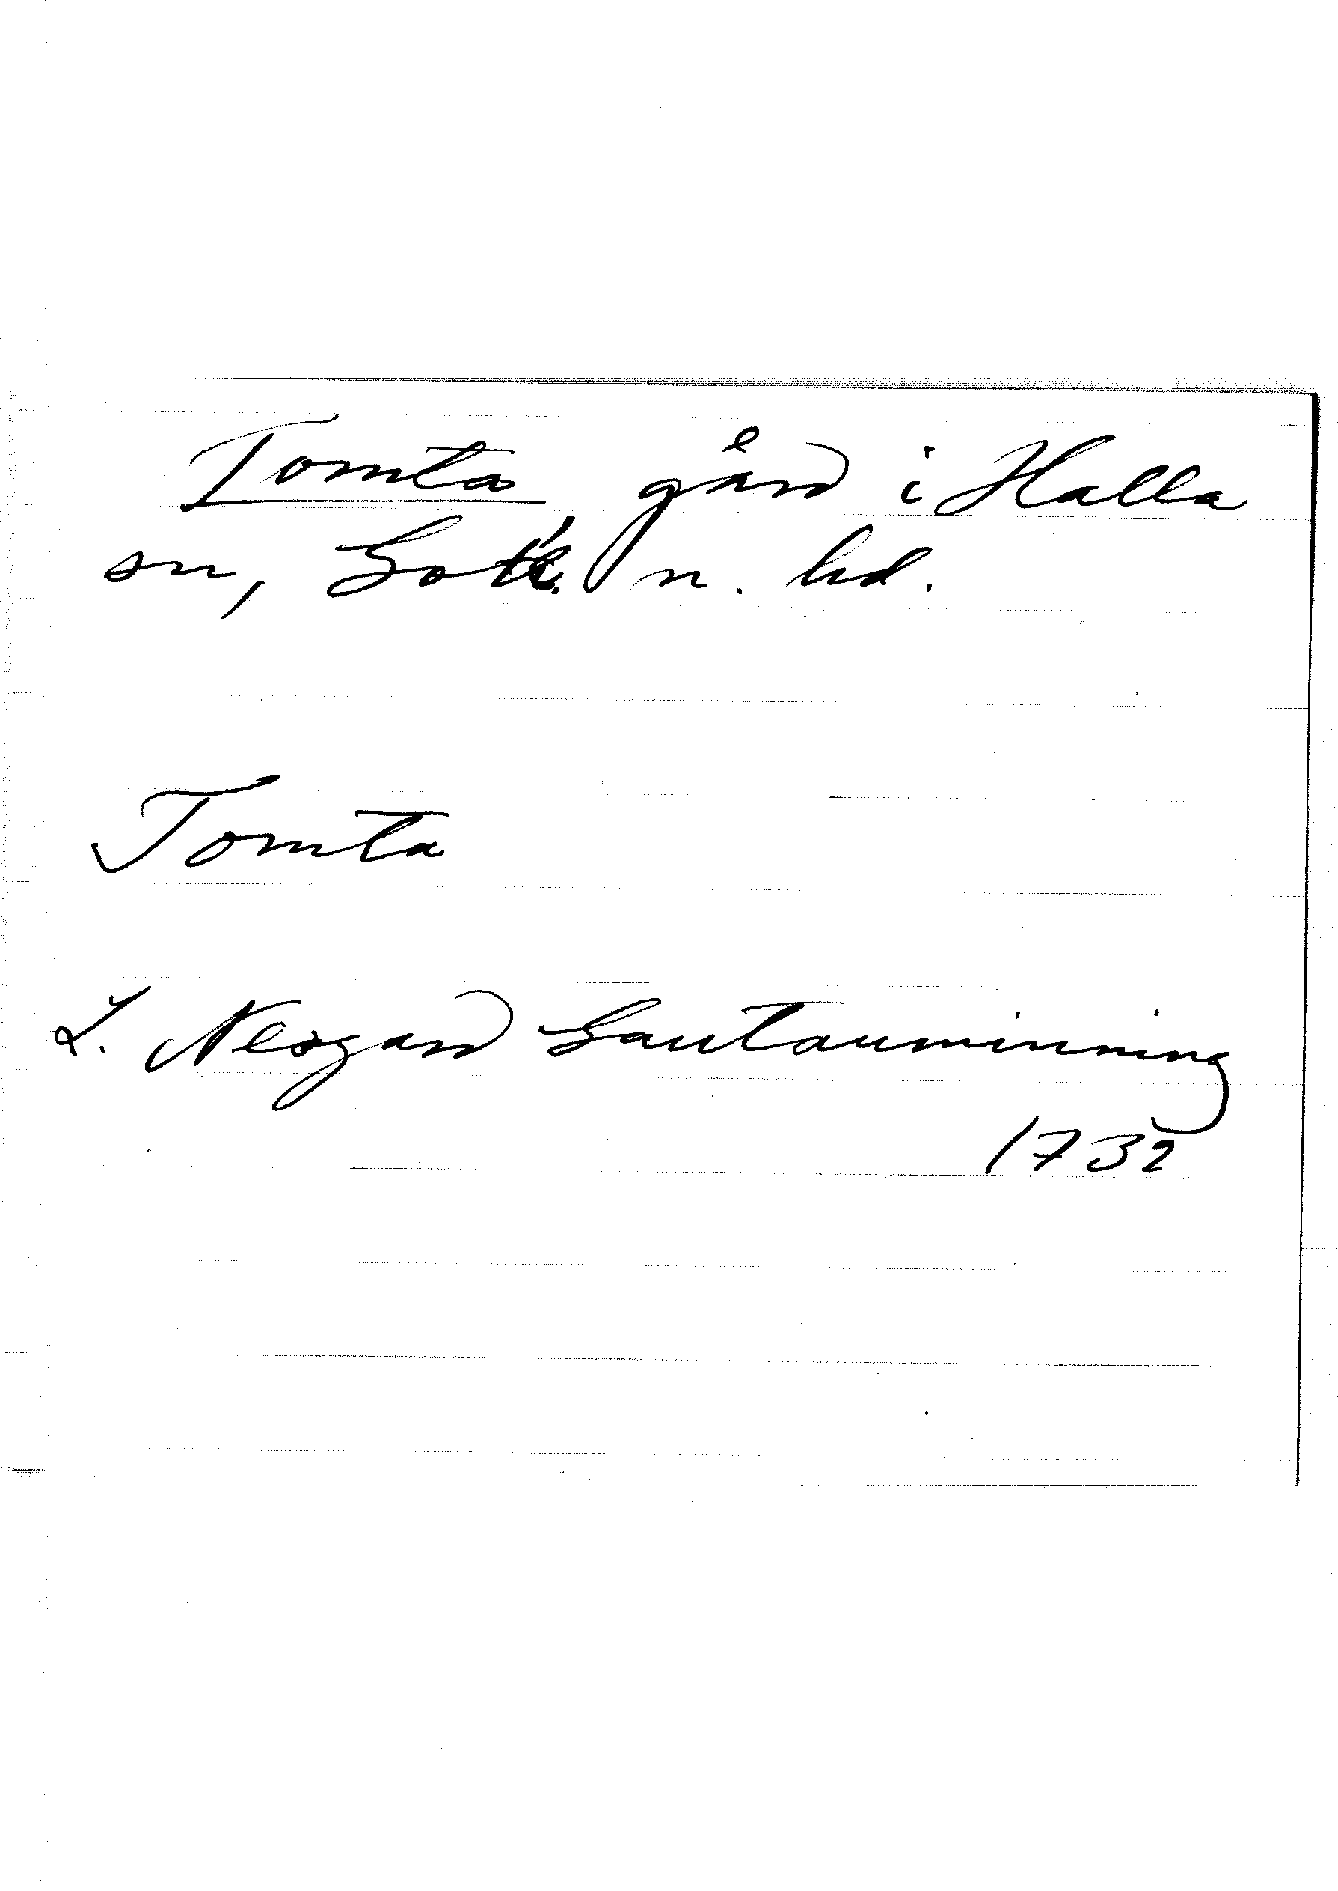 Tomta gård i Halla
sn, Gotl. n. hd.
Tomta
L. Neogard Gautauminning
1732